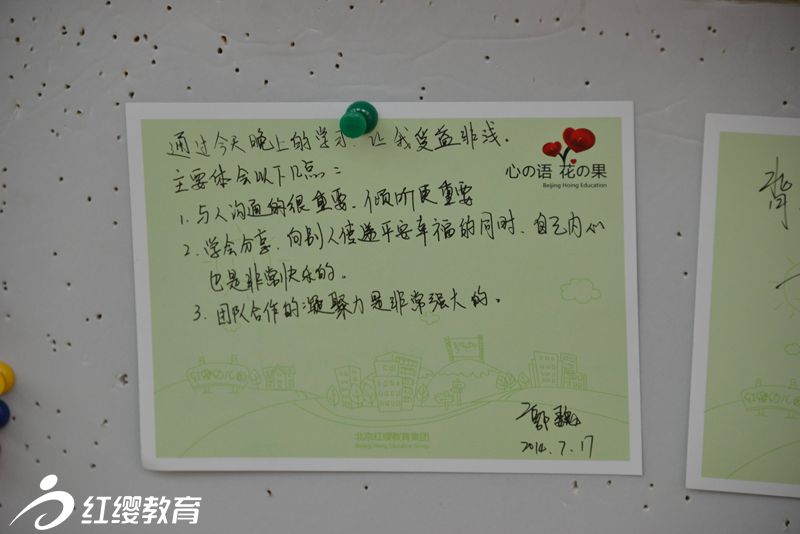 通过今天晚上的学习,让我受益非浅.
主要体会以下几点:
1.与人沟通的很重要、倾听更重要
2.学会分享,向别人传递平安幸福的同时,自己内心
也是非常快乐的。
3.团队合作的凝聚力是非常强大的。
心の语 花の果
Beijing Hoing Education
红缨幼儿园
北京红缨教育集团
Beijing Hoing Education Group
2014.7.17
红缨教育